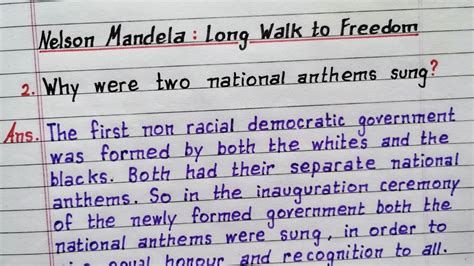 Nelson Mandela : Long Walk to Freedom
2. Why were two national anthems sung?
Ans. The first non racial democratic government
was formed by both the whites and the
blacks. Both had their separate national
anthems. So in the inauguration ceremony
of the newly formed government both the
national anthems were sung, in order to
equal honour and recognition to all.